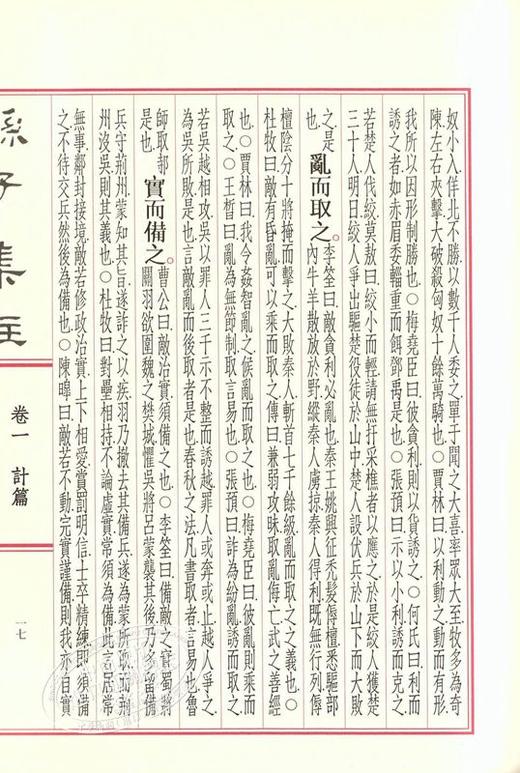 奴小入佯北不勝以數千人委之單于聞之大喜率眾大至牧多為奇
陳左右夾擊大破殺匈奴十餘萬騎也○賈林曰以利動之動而有形
我所以因形制勝也○梅堯臣曰彼貪利則以貨誘之○何氏曰利而
誘之者如赤眉委輜重而餌鄧禹是也○張預曰示以小利誘而克之
若楚人伐絞莫敖曰絞小而輕請無扞采樵者以應之於是絞人獲楚
三十人明日絞人爭出驅楚役徒於山中楚人設伏兵於山下而大敗
之是也 亂而取之。李筌曰敵貪利必亂也秦王姚興征禿髮傉檀悉驅部內牛羊散放於野縱秦人虜掠秦人得利既無行列傉
檀陰分十將掩而擊之大敗秦人斬首七千餘級亂而取之之義也○
杜牧曰敵有昏亂可以乘而取之傳曰兼弱攻昧取亂侮亡武之善經
也○賈林曰我令姦智亂之候亂而取之也○梅堯臣曰彼亂則乘而
取之○王晳曰亂為無節制取言易也○張預曰詐為紛亂誘而取之
若吳越相攻吳以罪人三千示不整而誘越罪人或奔或止越人爭之
為吳所敗是也言敵亂而後取者是也春秋之法凡書取者言易也魯
師取邿是也 實而備之。曹公曰敵治實須備之也○李筌曰備敵之實蜀將關羽欲圍魏之樊城懼吳將呂蒙襲其後乃多留備
兵守荊州蒙知其旨遂詐之以疾羽乃撤去其備兵遂為蒙所取而荊
州沒吳則其義也○杜牧曰對壘相持不論虛實常須為備此言居常
無事鄰封接境敵若修政治實上下相愛賞罰明信士卒精練即須備
之不待交兵然後為備也○陳皥曰敵若不動完實謹備則我亦自實
孫子集注
卷一 計篇
一七